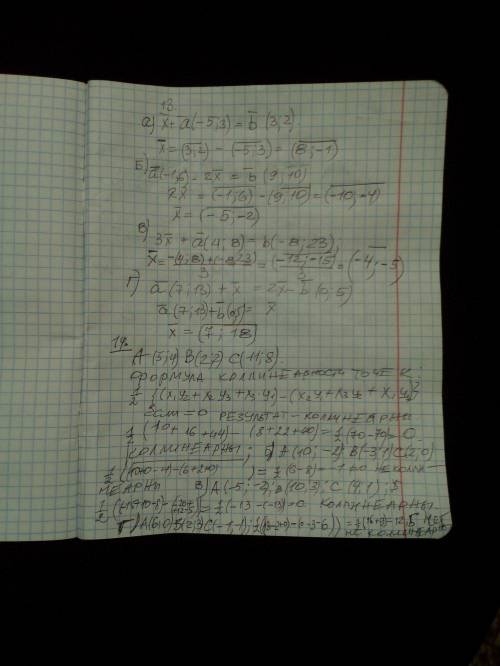 13.
а) x̄ + ā(-5;3) = b̄ (3,2)
x̄ = (3;2) - (-5;3) = (8;-1)
Б) ā(-1;6) - 2x̄ = b̄ (9;10)
2x̄ = (-1;6) - (9;10) = (-10;-4)
x̄ = (-5;-2)
в) 3x̄ + ā(4;8) = b(-8;23)
= (-12;-15)/3 = (-4;-5)
г) ā(7;13) + x̄ = 2x̄ - b̄(0;5)
ā(7;13) + b̄(0;5) = x̄
x̄ = (7;18)
19.
A(5;4) B(2;2) C(11;8).
ФОРМУЛА КОЛЛИНЕАРНОСТИ ТОЧЕК:
1/2 {(x₁y₂ + x₂y₃ + x₃y₁) - (x₂y₁ + x₃y₂ + x₁y₃)}
Если = 0 РЕЗУЛЬТАТ - КОЛЛИНЕАРНЫ
1/2 (10 + 16 + 44) - (8+22+40) = 1/2 (70-70) = 0
КОЛЛИНЕАРНЫ; б) A(10;-2) B(-3;1) C(2;0)
= 1/2(6-8) = -1 НЕ КОЛЛИ-
НЕАРНЫ В) A(-5;-2), B(10;3), C(4;1);
= 1/2(-13-(-13)) = 0 КОЛЛИНЕАРНЫ
Г) A(6;0) B(2;3) C(-1;1);
НЕ КОЛЛИНЕАРНЫ